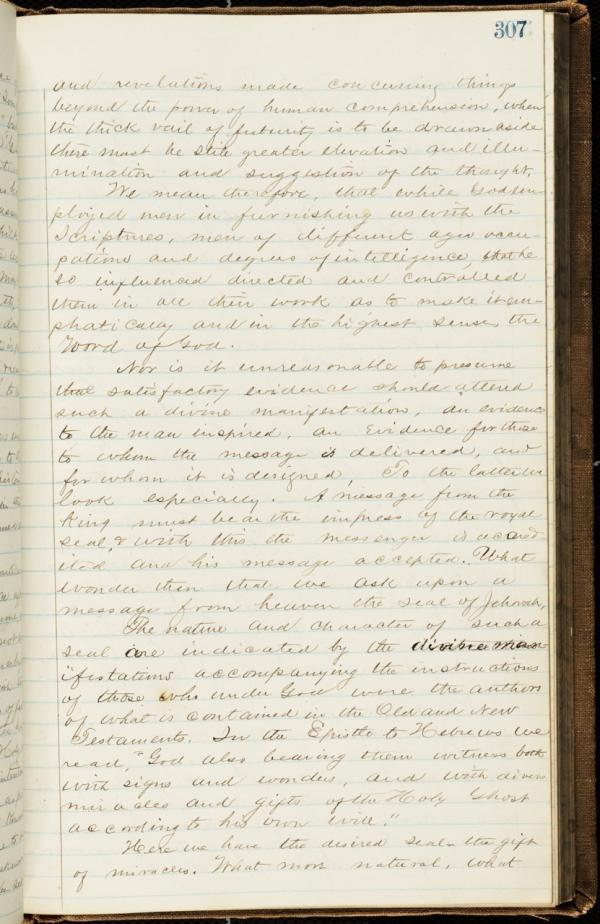 307
and revelations made concerning things
beyond the power of human comprehension, when
the thick vail of futurity is to be drawn aside
there must be still greater elevation and illu-
mination and suggestion of the thought.
We mean therefore, that while God em-
ployed men in furnishing us with the
Scriptures, men of different ages occu-
pations and degrees of intelligence, that he
so influenced directed and controlled
them in all their work as to make it em-
phatically and in the highest sense, the
Word of God.
Nor is it unreasonable to presume
that satisfactory evidence should attend
such a divine manifestation, an evidence
to the man inspired, an evidence for those
to whom the message is delivered, and
for whom it is designed, To the latter we
look especially. A message from the
King must bear the impress of the royal
seal, & with this the messenger is accred
ited and his message accepted. What
wonder then that we ask upon a
message from heaven the seal of Jehovah,
The nature and character of such a
seal are indicated by the divine man
"ifestations accompanying the instructions
of those who under God were the authors
of what is contained in the Old and New
Testaments. In the Epistle to Hebrews we
read, "God also bearing them witness both
with signs and wonders, and with divers
miracles and gifts of the Holy Ghost
according to his own will."
Here we have the desired seal - the gift
of miracles. What more natural, what